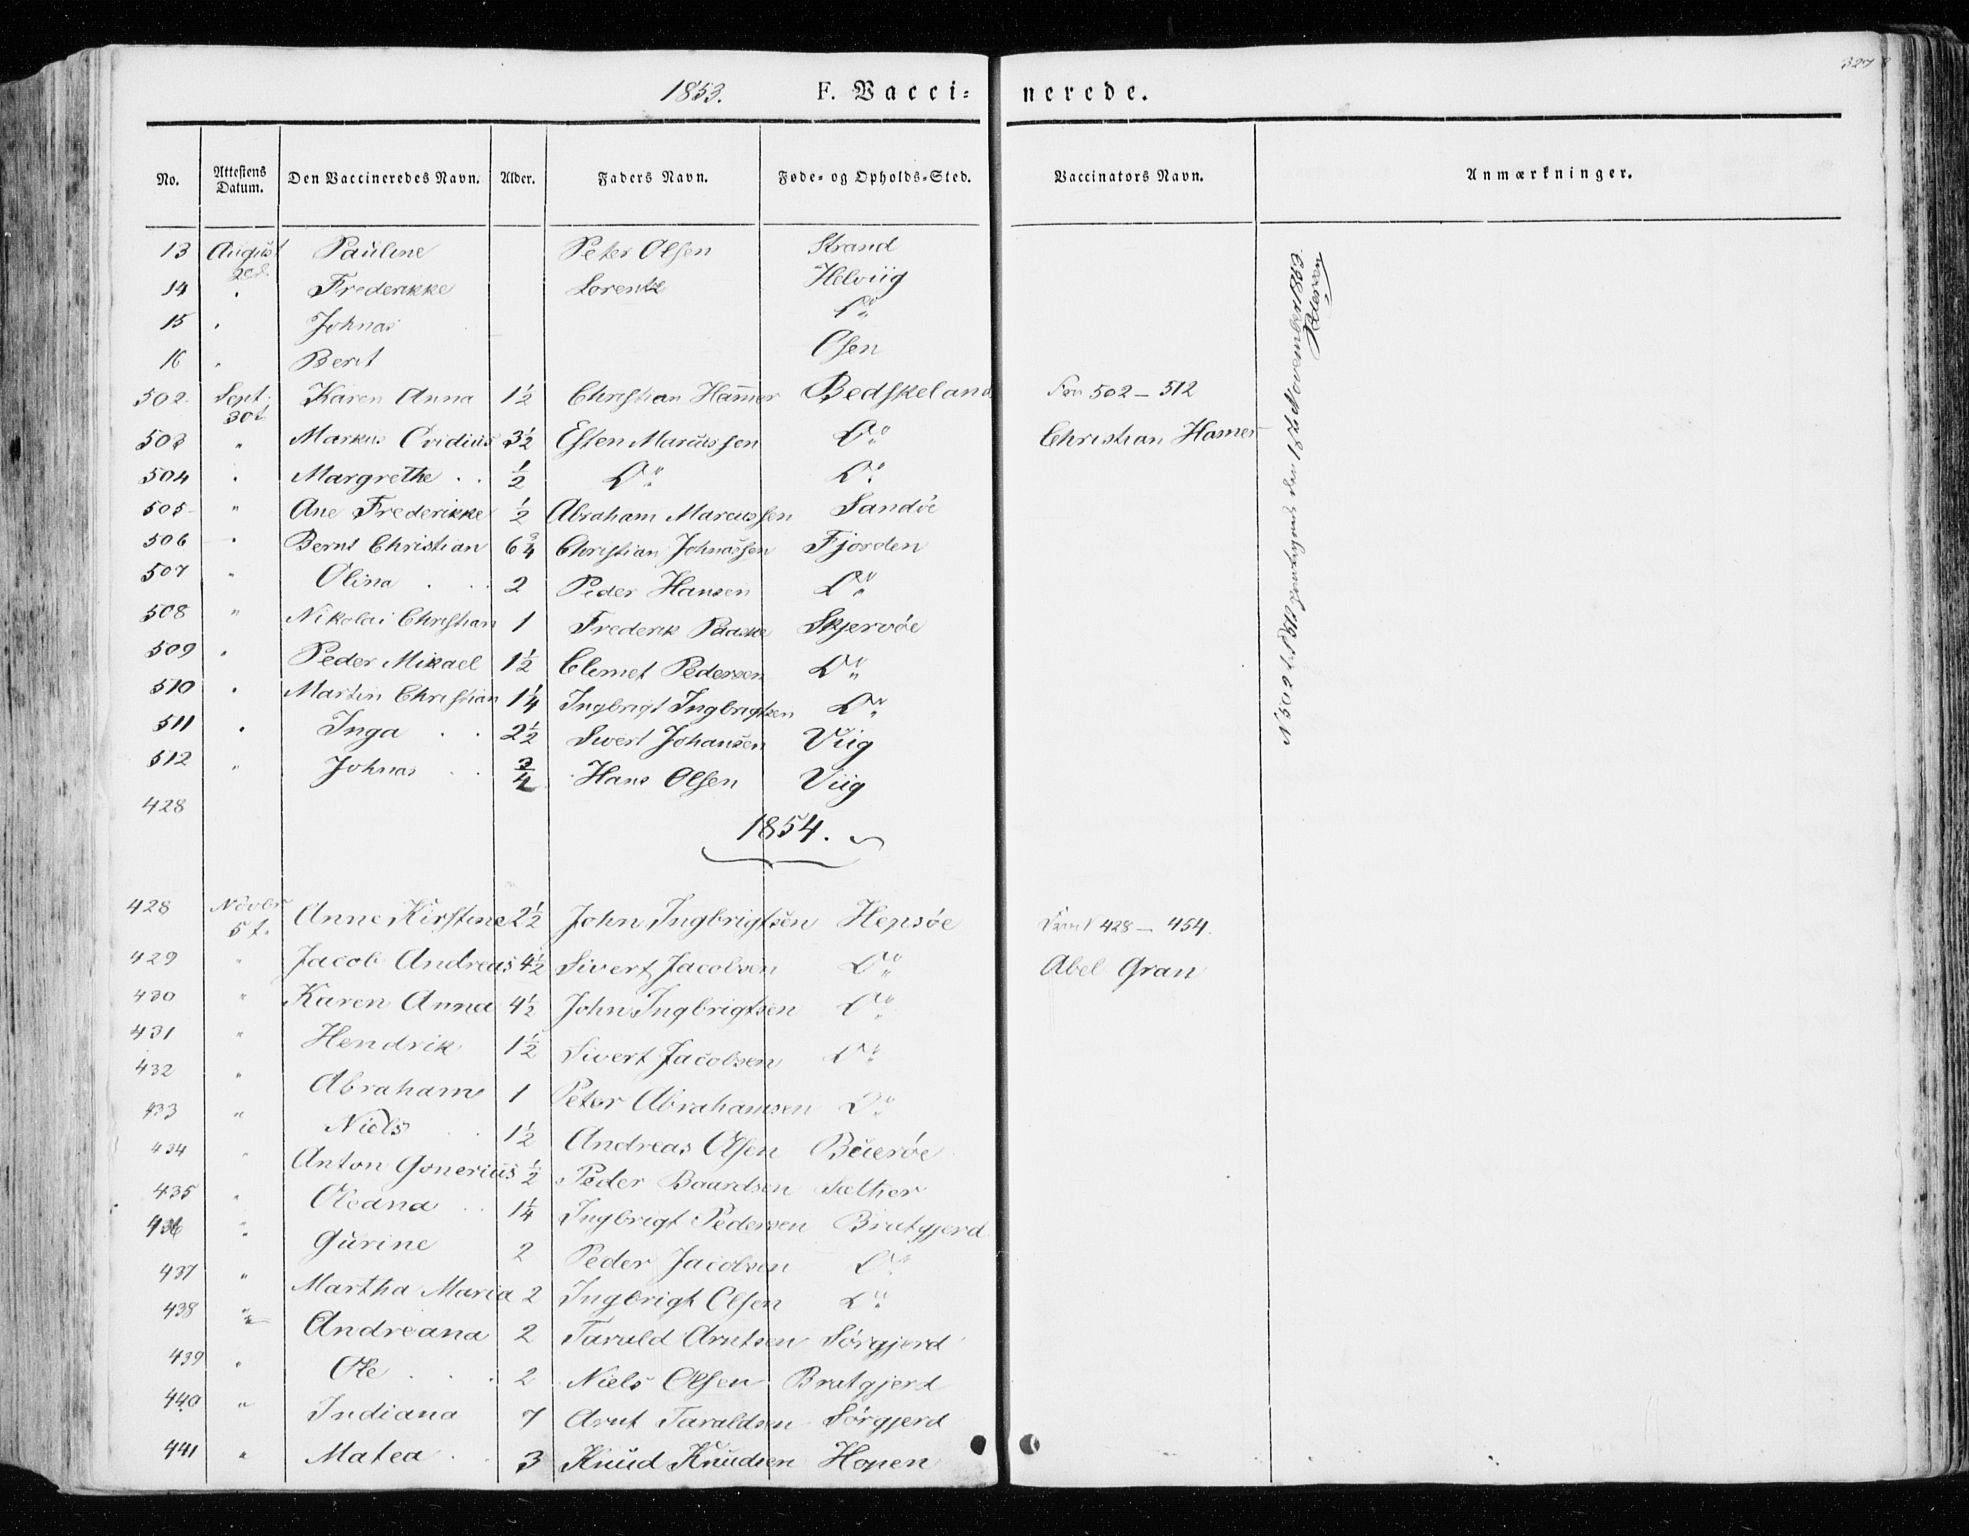 1853. F. Vacci= nerede.
No. Attestens Datum. Den Vaccineredes Navn. Alder. Faders Navn. Føde= og Opholds=Sted. Vaccinators Navn. Anmærkninger.
13 August Pauline Peter Olsen Strand
14 " Frederikke Lorentz Helviig
15 " Johnas Do
16 " Berit Osen
502 Sept. 30t Karen Anna 1½ Christian Ham̄er Bedskeland Fra 502 – 512
503 " Markus Ovidius 3½ Esten Marcussen Do Christian Hamer
504 " Margrethe . . ½ Do Do
505 " Ane Frederikke ½ Abraham Marcussen Sandøe
506 " Bernt Christian 6¾ Christian Johnassen Fjorden
507 " Olina . . 2 Peder Hansen Do
508 " Nikolai Christian 1 Frederik Paaske Skjervøe
509 " Peder Mikael 1½ Clemet Pedersen Do
510 " Martin Christian 1¼ Ingbrigt Ingbrigtsen Do
511 " Inga . . 2½ Sivert Johansen Viig
512 " Johnas . . ¾ Hans Olsen Viig
428
1854.
428 Novbr 5t. Anne Kirstine 2½ John Ingbrigtsen Hepsøe 428 – 454.
429 " Jacob Andreas 4½ Sivert Jacobsen Do Abel Gran
430 " Karen Anna 4½ John Ingbrigtsen Do
431 " Hendrik 1½ Sivert Jacobsen Do
432 " Abraham 1 Peter Abrahamsen Do
433 " Niels . . 1½ Andreas Olsen Buerøe
434 " Anton Gonerius ½ Peder Baardsen Sæther
435 " Oleana . . 1¼ Ingbrigt Pedersen Bratgjerd
436 " Gurine 2 Peder Jacobsen Do
437 " Martha Maria 2 Ingbrigt Olsen Do
438 " Andreana 2 Tarald Arntsen Sørgjerd
439 " Ole . . . 2 Niels Olsen Bratgjerd
440 " Indiana 7 Arnt Taraldsen Sørgjerd
441 " Matea . . 3 Knud Knudsen Hopen
November 1853
Pedersen